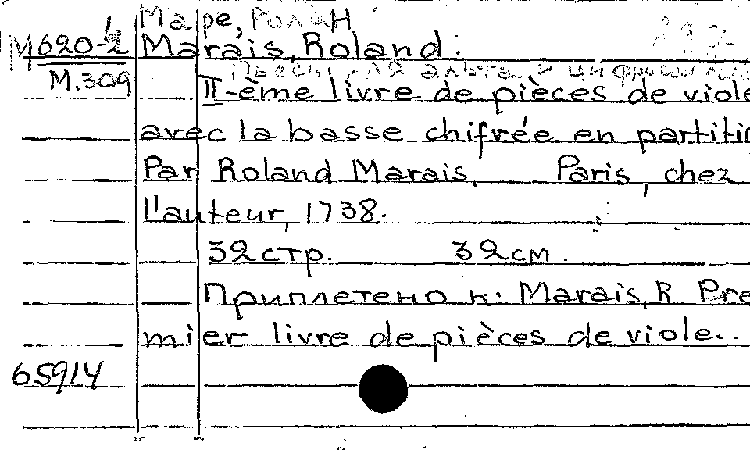 Маре, Ролан
M620-2 Marais, Roland:
M.309
II-ème livre de pièces de viole
avec la basse chifrée en partitio
Par Roland Marais. Paris, chez
l'auteur, 1738.
32 стр. 32 см.
Приплетено к: Marais, R. Pre
mier livre de pièces de viole..
65914